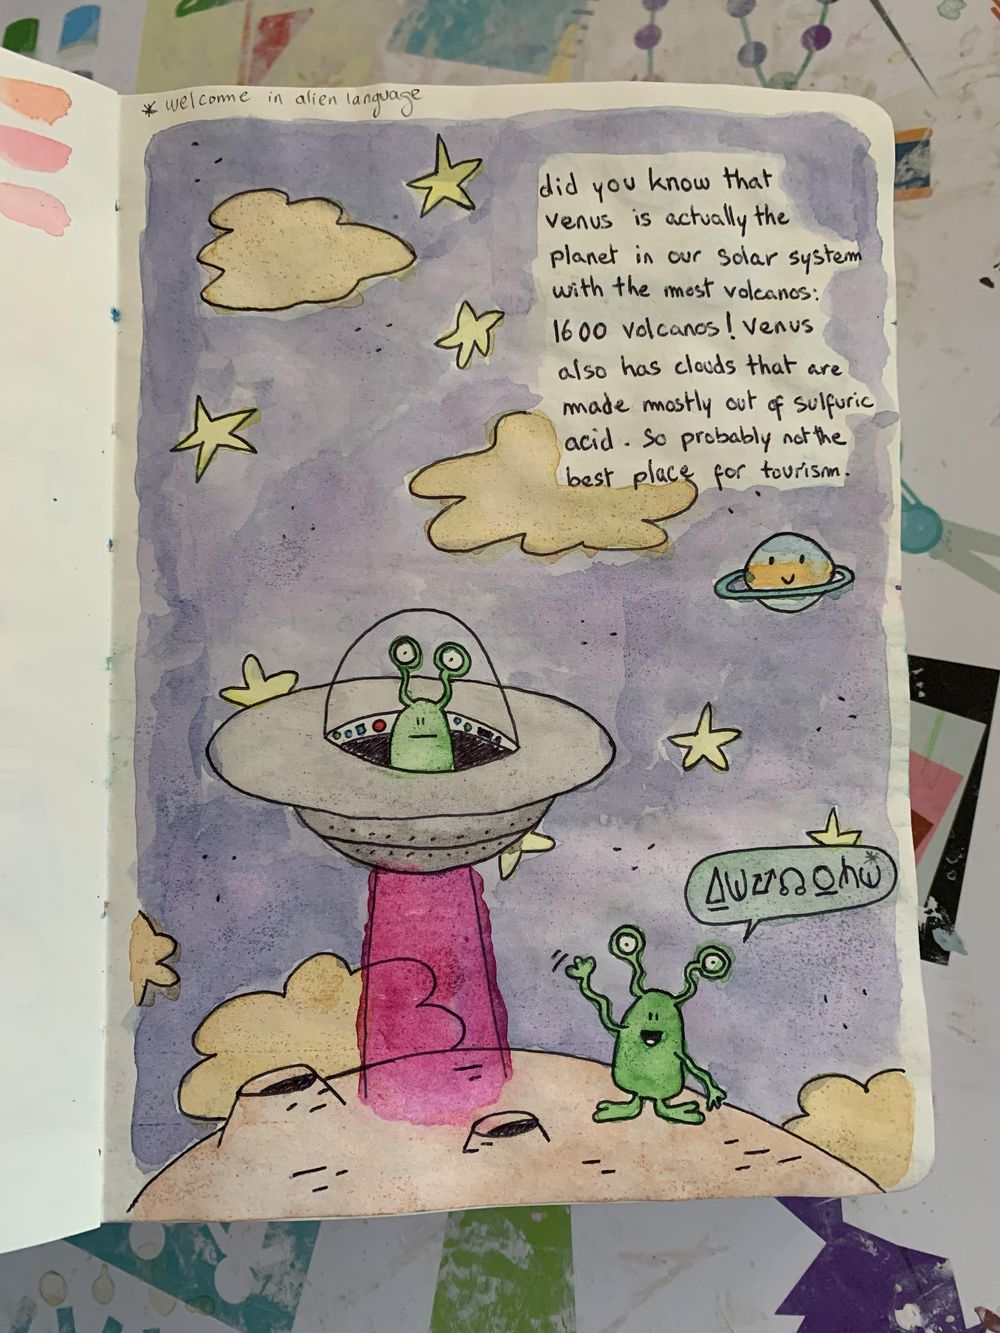 * welcome in alien language
did you know that
venus is actually the
planet in our solar system
with the most volcanos:
1600 volcanos! Venus
also has clouds that are
made mostly out of sulfuric
acid. So probably not the
best place for tourism.